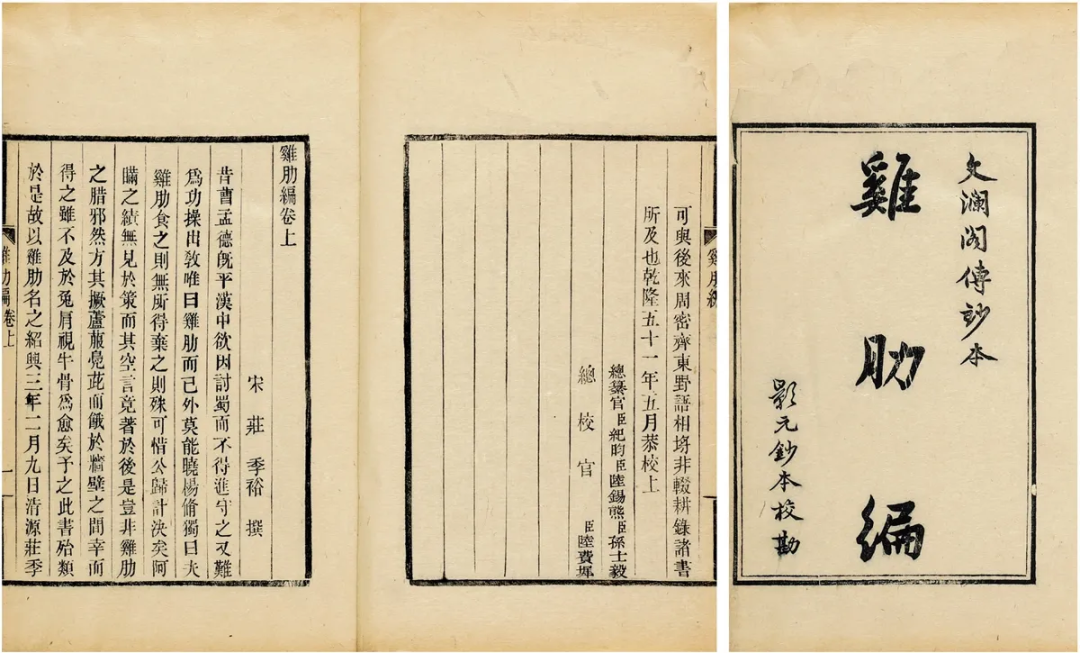 文瀾閣傳鈔本
雞肋編
影元鈔本校勘
雞肋編
可與後來周密齊東野語相埒非輟耕錄諸書
所及也乾隆五十一年五月恭校上
總纂官臣紀昀臣陸錫熊臣孫士毅
總校官臣陸費墀
雞肋編卷上
宋莊季裕撰
昔曹孟德旣平漢中欲因討蜀而不得進守之又難
爲功操出敎唯曰雞肋而已外莫能曉楊脩獨曰夫
雞肋食之則無所得棄之則殊可惜公歸計決矣阿
瞞之績無見於策而其空言竟著於後是豈非雞肋
之腊邪然方其撅蘆菔鳧茈而餓於牆壁之間幸而
得之雖不及於兔肩視牛骨爲愈矣予之此書殆類
於是故以雞肋名之紹興三年二月九日清源莊季
雞肋編卷上
一